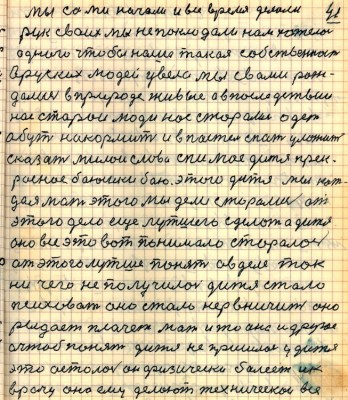 41
мы сами начали и все время делали
рук своих мы не покладали нам хотелось
одного чтобы наша такая собственность
в руских людей увела мы с вами рож-
дались в природе живые а впоследствии
нас старой люди нас сторали одет
обут накормит и в постел спат уложит
сказат милои слова спи мое дитя прек-
расное баюшки баю. этого дитя мы каж-
дая мат этого мы дети сторались от
этого дело еще лутшего сделат а дитя
оно все это вот понимало сторалос
от этого лутше понят а в деле так
ни чего не получилос дитя стало
психоват оно стало нервничит оно
рыдает плачет мат и то ано и другое
а чтоб понят дитя не пришлос у дитя
это осталос он физически балеет их
врачу оно ему делоют технической все